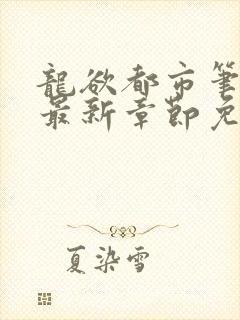 龍欲都市筆
最新章節免
夏染雪